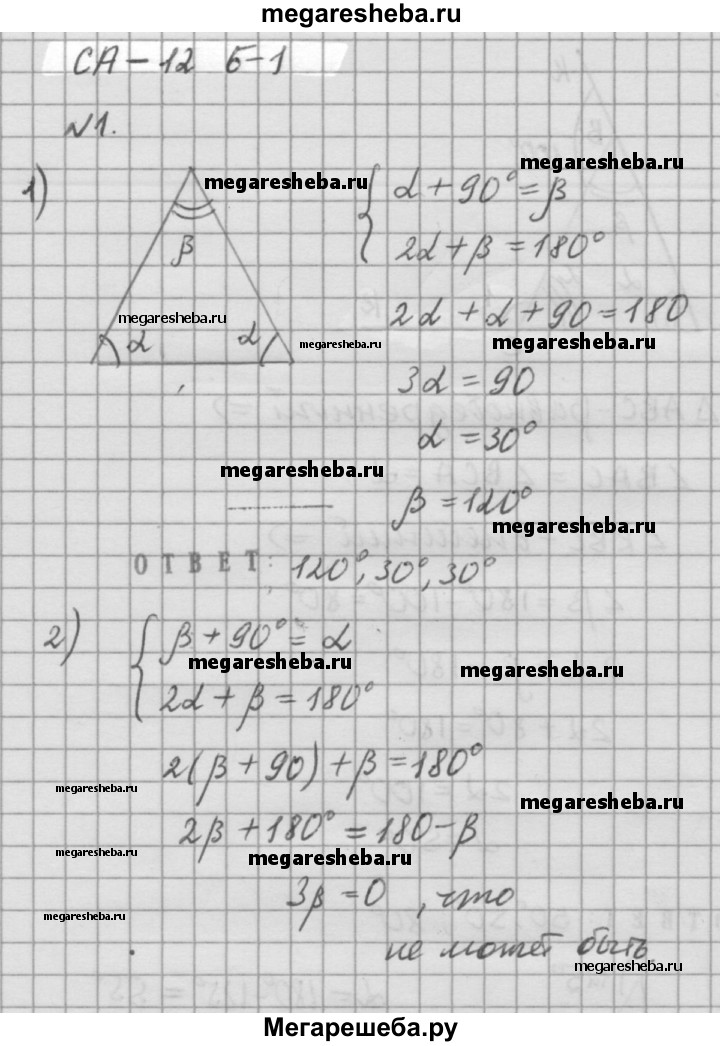 megaresheba.ru
СА-12 Б-1
№1.
megaresheba.ru
1)
megaresheba.ru
α + 90° = β
β
2α + β = 180°
megaresheba.ru
2α + α + 90 = 180
α α
megaresheba.ru
megaresheba.ru
3α = 90
α = 30°
megaresheba.ru
β = 120°
megaresheba.ru
ОТВЕТ: 120°, 30°, 30°
2)
β + 90° = α
megaresheba.ru
megaresheba.ru
2α + β = 180°
2(β + 90) + β = 180°
megaresheba.ru
megaresheba.ru
2β + 180° = 180 - β
megaresheba.ru
megaresheba.ru
3β = 0, что
megaresheba.ru
не может быть.
megaresheba.ru
Мегарешеба.ру